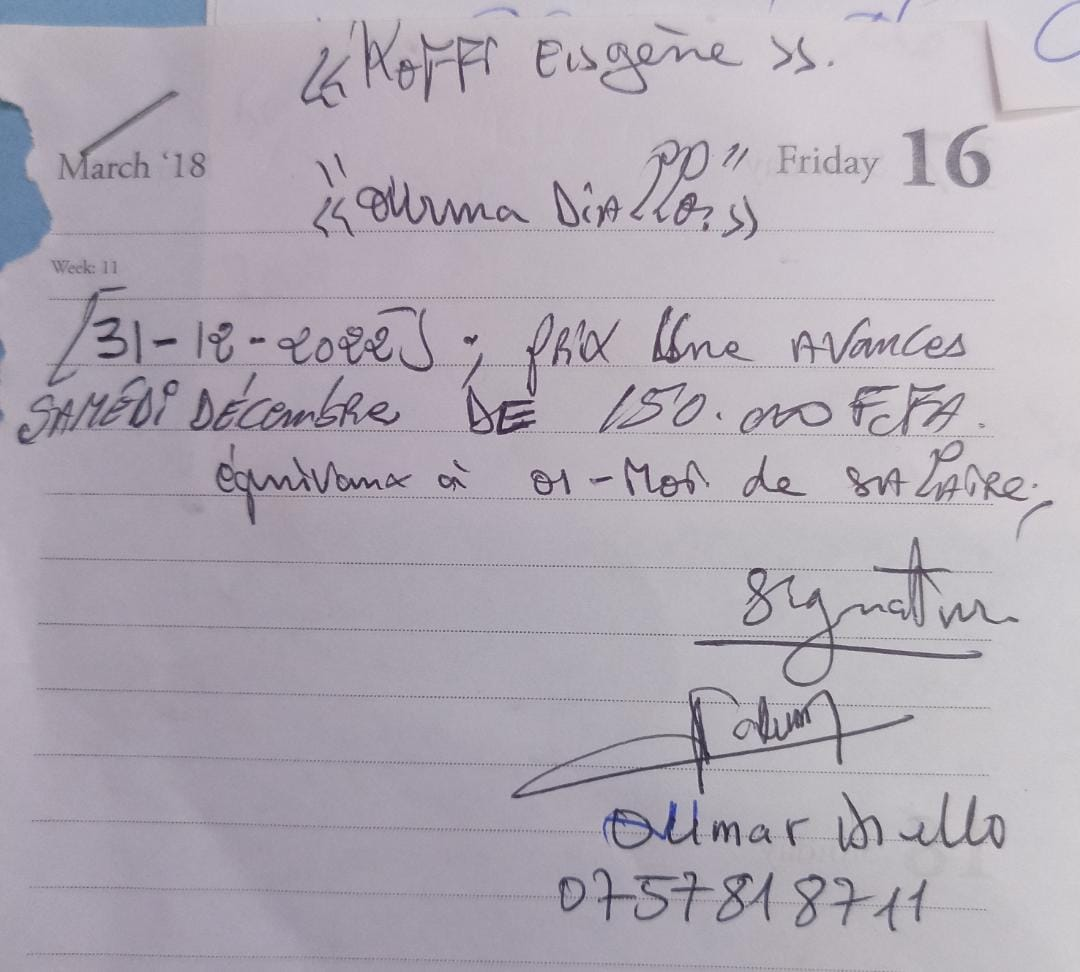 « Koffi Eugène ».
March '18
PP" Friday 16
« Ouma Diallo »
Week: 11
[31-12-2022] ; prix Une AVANCES
SAMEDI DÉCEMBRE DE 150.000 FCFA.
équivaux à 01-Moi de SALAIRE.
Signature
Oumar Diallo
0757818711